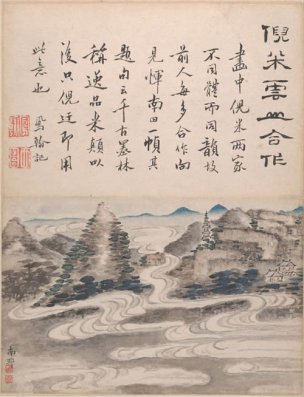 倪米雲山合作
畫中倪米兩家
不同體而同韻故
前人每多合作向
見惲南田一幀其
題句云千古墨林
稱逸品米顛以
後只倪迂即用
此意也
記